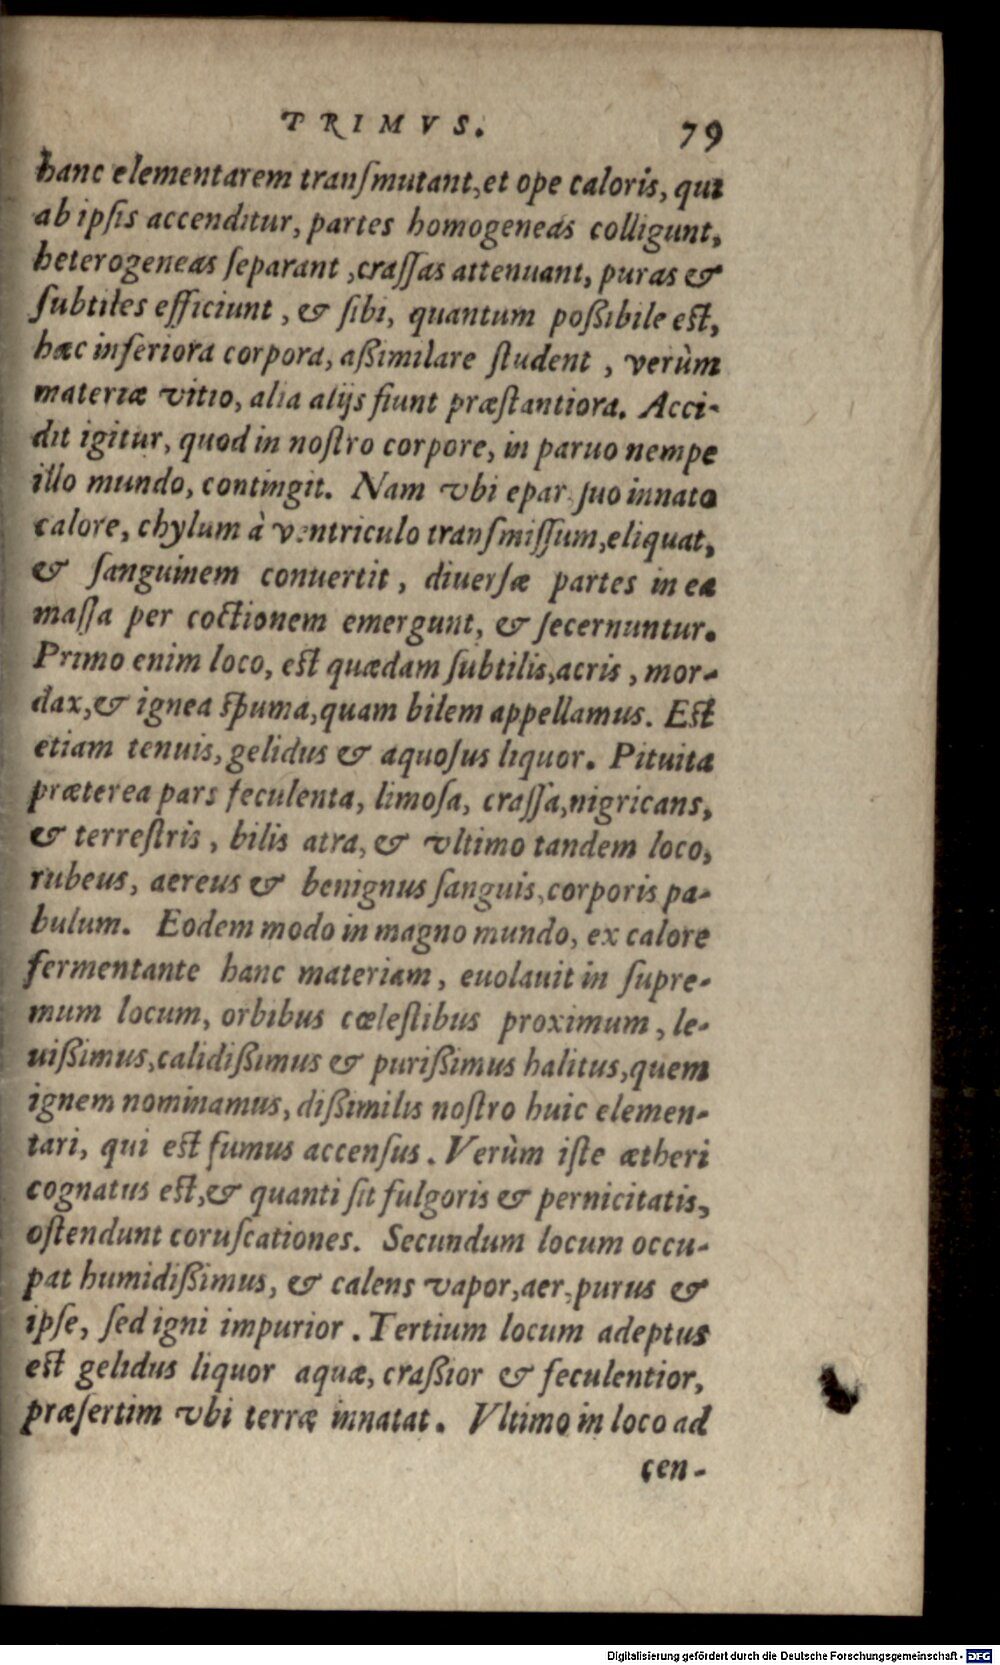 TRIMVS. 79
hanc elementarem tranſmutant, et ope caloris, qui
ab ipſis accenditur, partes homogeneas colligunt,
heterogeneas ſeparant, craſſas attenuant, puras &
ſubtiles efficiunt, & ſibi, quantum poßibile eſt,
hæc inferiora corpora, aßimilare ſtudent, verùm
materiæ vitio, alia alijs fiunt præſtantiora. Acci-
dit igitur, quod in noſtro corpore, in paruo nempe
illo mundo, contingit. Nam vbi epar ſuo innato
calore, chylum à ventriculo tranſmiſſum, eliquat,
& ſanguinem conuertit, diuerſæ partes in ea
maſſa per coctionem emergunt, & ſecernuntur.
Primo enim loco, eſt quædam ſubtilis, acris, mor-
dax, & ignea ſpuma, quam bilem appellamus. Eſt
etiam tenuis, gelidus & aquoſus liquor. Pituita
præterea pars feculenta, limoſa, craſſa, nigricans,
& terreſtris, bilis atra, & vltimo tandem loco,
rubeus, aereus & benignus ſanguis, corporis pa-
bulum. Eodem modo in magno mundo, ex calore
fermentante hanc materiam, euolauit in ſupre-
mum locum, orbibus cœleſtibus proximum, le-
uißimus, calidißimus & purißimus halitus, quem
ignem nominamus, dißimilis noſtro huic elemen-
tari, qui eſt fumus accenſus. Verùm iſte ætheri
cognatus eſt, & quanti ſit fulgoris & pernicitatis,
oſtendunt coruſcationes. Secundum locum occu-
pat humidißimus, & calens vapor, aer, purus &
ipſe, ſed igni impurior. Tertium locum adeptus
eſt gelidus liquor aquæ, craßior & feculentior,
præſertim vbi terræ innatat. Vltimo in loco ad
cen-
Digitalisierung gefördert durch die Deutsche Forschungsgemeinschaft - DFG